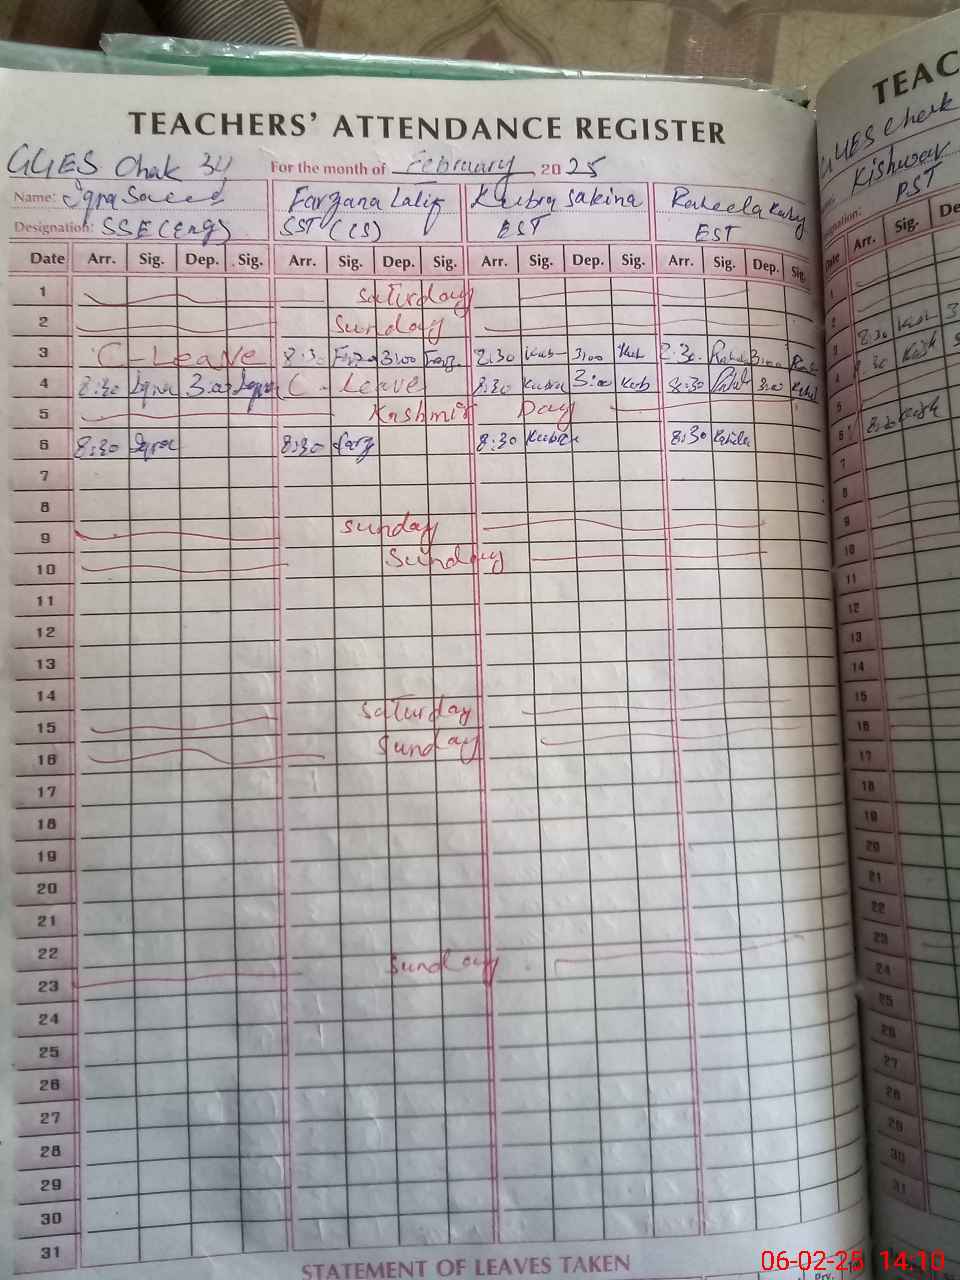 TEACHERS' ATTENDANCE REGISTER
GGES Chak 34 For the month of February 2025
Name: Iqra Saeed Farzana Latif Kubra Sakina Raheela Kuby
Designation: SSE (Eng) SST (CS) EST EST
Date Arr. Sig. Dep. Sig. Arr. Sig. Dep. Sig. Arr. Sig. Dep. Sig. Arr. Sig. Dep. Sig.
1 Saturday
2 Sunday
3 C-Leave 8:30 Farz 3:00 Farz 8:30 Kub 3:00 Kub 8:30 3:00
4 8:30 Iqra 3:00 Iqra C-Leave 8:30 Kubra 3:00 Kub 8:30 3:00
5 Kashmir Day
6 8:30 Iqra 8:30 Farz 8:30 Kubra 8:30
7
8
9 Sunday
10 Sunday
11
12
13
14
15 Saturday
16 Sunday
17
18
19
20
21
22
23 Sunday
24
25
26
27
28
29
30
31
STATEMENT OF LEAVES TAKEN
TEAC
GGES Chak
Kishwer
PST
Arr. Sig. De
1
2
8:30 Kish 3
3
8:30 Kish 3
4
5
6 8:30 Kish
7
8
9
10
11
12
13
14
15
16
17
18
19
20
21
22
23
24
25
26
27
28
29
30
31
06-02-25 14:10